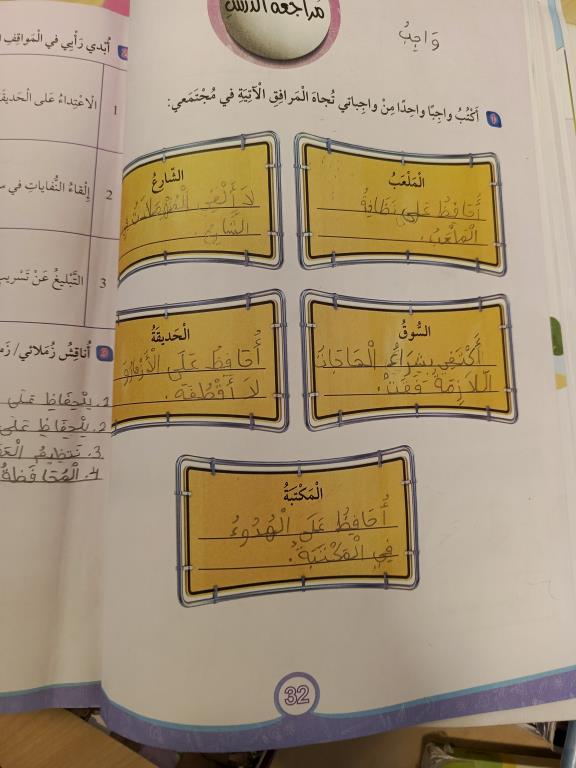 مُراجَعَةُ الدَّرْسِ
وَاجِبُ
1 أَكْتُبُ واجِبًا واحِدًا مِنْ واجِباتي تُجاهَ الْمَرافِقِ الْآتِيَةِ في مُجْتَمَعي:
الْمَلْعَبُ
أُحَافِظُ عَلَى نَظَافَةِ
الْمَلْعَبِ.
الشّارِعُ
لَا أُلْقِي الْمُهْمَلَاتِ
الشَّارِعِ.
السُّوقُ
أَكْتَفِي بِشِرَاءِ الْحَاجَاتِ
الْلَازِمَةُ فَقَطْ.
الْحَديقَةُ
أُحَافِظُ عَلَى الْأَزْهَارِ وَ
لَا أَقْطُفُهَ.
الْمَكْتَبَةُ
أُحَافِظُ عَلَى الْهُدُوءُ
فِي الْمَكْتَبَةِ.
32
أُبْدي رَأْيِي في الْمَواقِفِ
1 الْاعْتِداءُ عَلى الْحَديقَةِ
2 إِلْقاءُ النُّفاياتِ في
3 التَّبْليغُ عَنْ تَسْريبِ
3 أُناقِشُ زُمَلائي/
1. يَحْفَاظِ عَلَى
2. يَحْفَاظِ عَلَى
3. تَنْظِيمُ
4. الْمُحَافَظَةُ